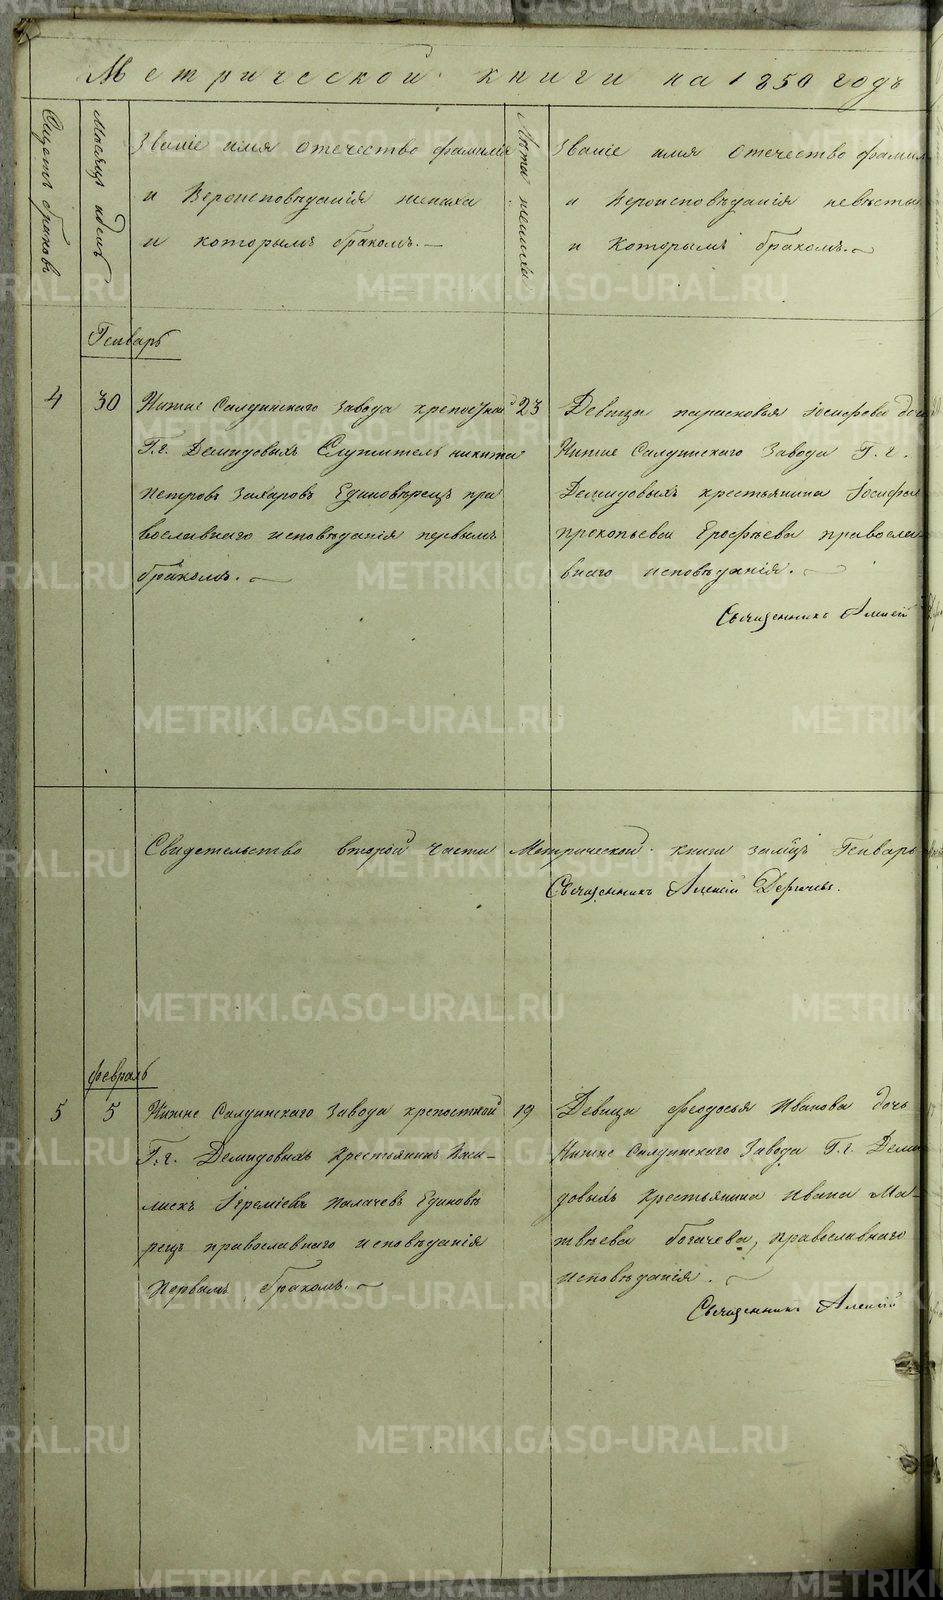 Метрической книги на 1850 годъ
Счетъ браковъ
Месяцъ и день
Званіе имя отечество фамилія
и Вероисповѣданія жениха
и которымъ бракомъ.
Лѣта жениха
Званіе имя отечество фамил
и Вероисповѣданія невѣсты
и Которымъ бракомъ.
Генварь
4
30
Нижне Салдинскаго Завода крепостной
Г.г. Демидовыхъ Служитель никита
петровъ Захаровъ Единовѣрецъ пра
вославнаго исповѣданія первымъ
бракомъ.
23
Девица парасковья Іосифова доч
Нижне Салдинскаго Завода Г.г.
Демидовыхъ крестьянина Іосифа
прокопьева Ерофѣева правосла
внаго исповѣданія.
Священникъ Алексій
Свидетельство второй части Метрической книги за м͠цъ Генварь
Священникъ Алексій Дерягинъ.
февраль
5
5
Нижне Салдинскаго Завода крепостной
Г.г. Демидовыхъ Крестьянинъ Васи-
лискъ Іереміевъ Палачевъ Единовѣ
рецъ православнаго исповѣданія
Первымъ бракомъ.
19
Девица феодосья Иванова дочь
Нижне Салдинскаго Завода Г.г. Деми
довыхъ Крестьянина Ивана Ма-
твѣева богачева, православнаго
исповѣданія.
Священникъ Алексій
METRIKI.GASO-URAL.RU